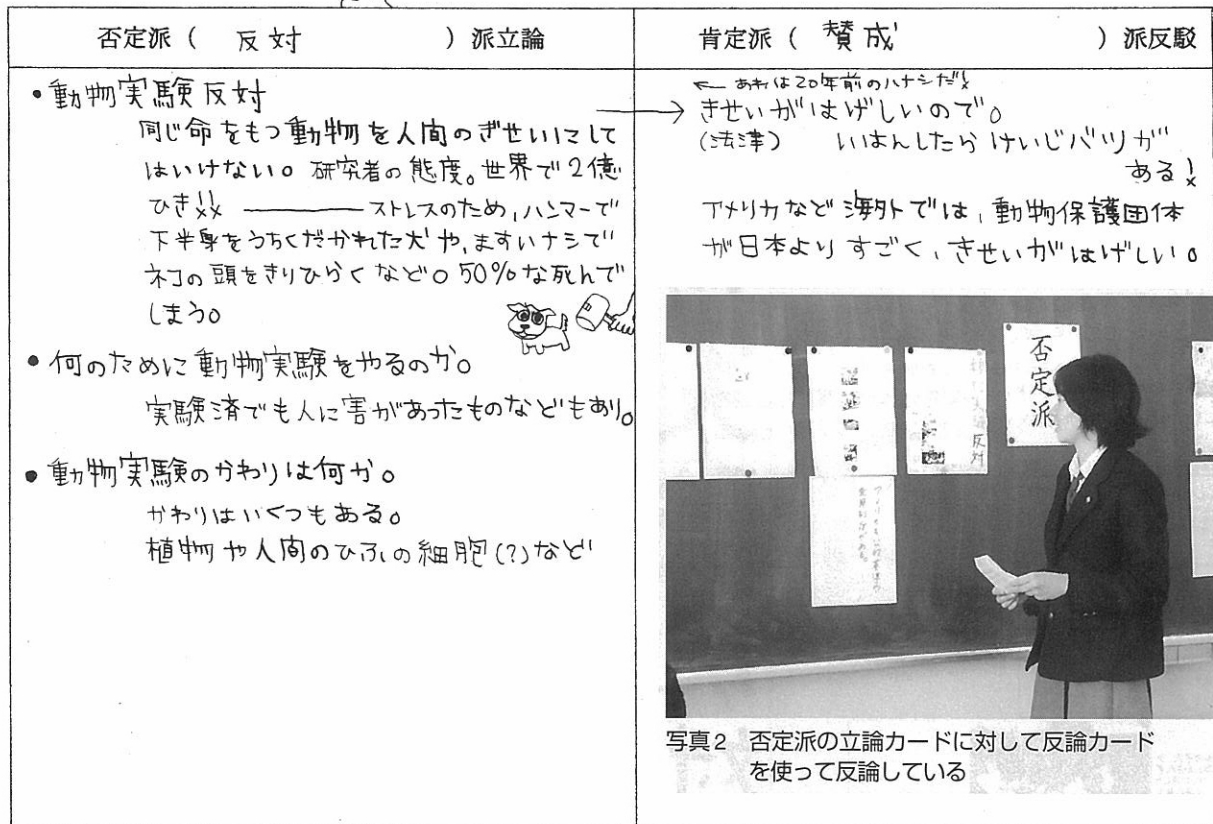 否定派（ 反対 ）派立論
・動物実験反対
同じ命をもつ動物を人間のぎせいにして
はいけない。研究者の態度。世界で2億
ひき!! ――― ストレスのため,ハンマーで
下半身をうちくだかれた犬や,ますいナシで
ネコの頭をきりひらくなど。50%な死んで
しまう。
・何のために動物実験をやるのか。
実験済でも人に害があったものなどもあり。
・動物実験のかわりは何か。
かわりはいくつもある。
植物や人間のひふの細胞(?)など
肯定派（ 賛成 ）派反駁
← あれは20年前のハナシだ!
→ きせいがはげしいので。
(法津) いはんしたらけいじバツが
ある!
アメリカなど海外では,動物保護団体
が日本よりすごく,きせいがはげしい。
否定派
反対
写真2 否定派の立論カードに対して反論カード
を使って反論している